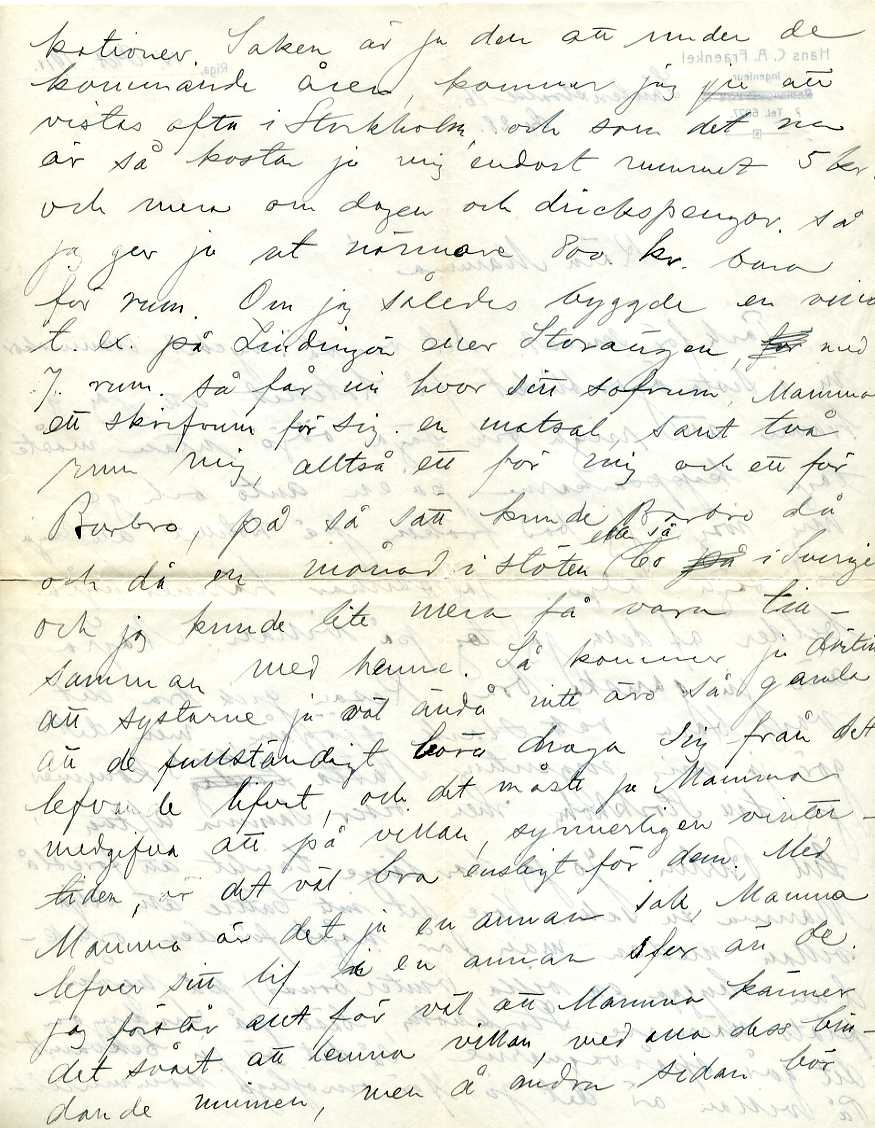 kationer. Saken är ju den att under de
kommande åren, kommer jag ju att
vistas ofta i Stockholm, och som det nu
är så kostar ju mig endast rummet 5 kr.
och mera om dagen och drickspengar, så
jag ger ju ut närmare 800 kr. bara
för rum. Om jag således byggde en villa
t. ex. på Lidingön eller Storängen, för med
7. rum. så får ni hvar sitt sofrum, Mamma
ett skrifrum för sig. en matsal samt två
rum mig, alltså ett för mig och ett för
Barbro, på så sätt kunde Barbro då
och då en månad i stöten eller så bo på i Sverige
och jag kunde lite mera få vara till-
samman med henne. Så kommer ju därtill
att systarne ju väl ändå intt äro så gamla
att de fullständigt böra draga sig från det
lefvande lifvet, och det måste ju Mamma
medgifva att på villan, synnerligen vinter-
tiden, är det väl bra ensligt för dem. Med
Mamma är det ju en annan sak, Mamma
lefver sitt lif i en annan sfer än de.
jag förstår allt för väl att Mamma känner
det svårt att lemna villan, med alla dess bin-
dande minnen, men å andra sidan bör
Hans C. A. Fraenkel
Ingenieur
Riga,
Tel.